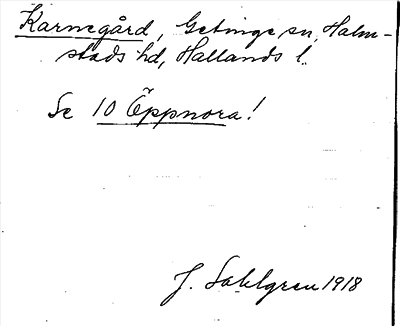 Karnegård, Getinge sn, Halm-
stads hd, Hallands l.
Se 10 Öppnora!
J. Sahlgren 1918